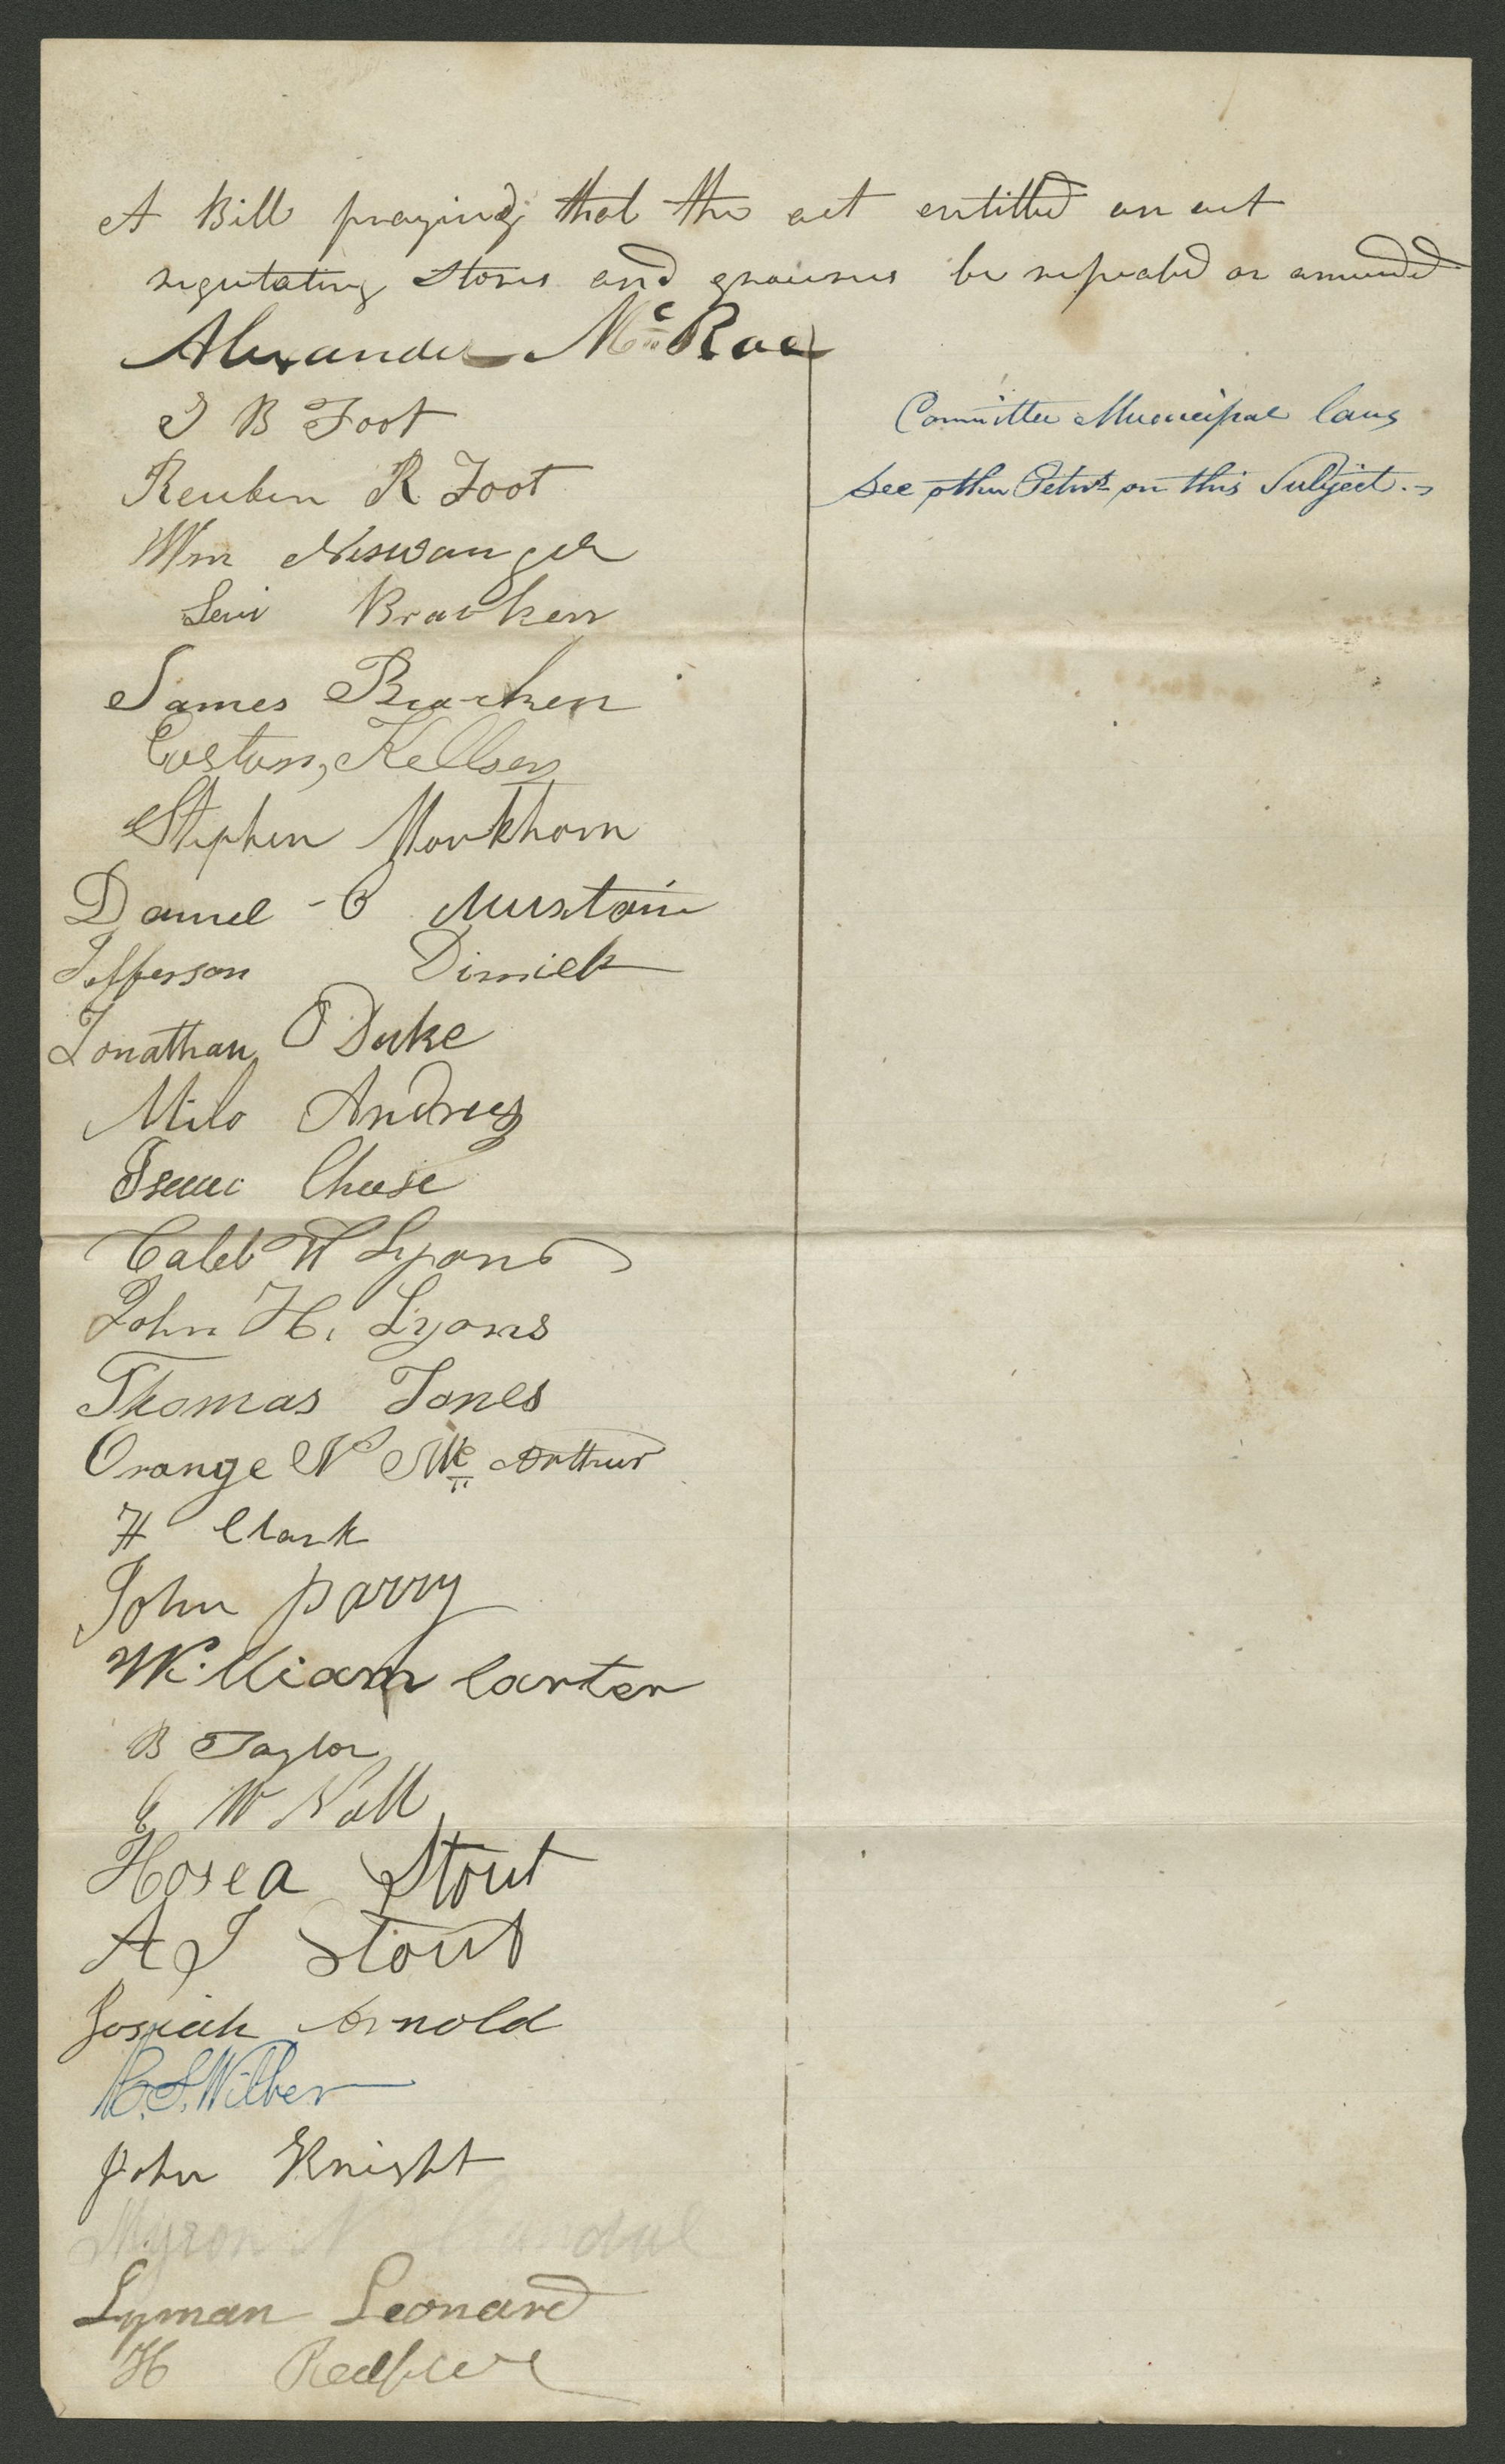 A Bill praying that the act entitled an act
regulating stores and groceries be repealed or amended
Alexander McRae
Committee Municipal laws
see other Petns on this Subject.
J B Foot
Reuben R Foot
Wm Niswanger
Levi Bracken
James Bracken
Easton Kellsey
Stephen Markham
Daniel C Mustain
Jefferson Dimick
Jonathan O Duke
Milo Andrus
Isaac Chase
Caleb W Lyons
John H. Lyons
Thomas Jones
Orange N McArthur
H Clark
John Parry
William Carter
B Taylor
C W Nall
Hosea Stout
A J Stout
Josiah Arnold
M. S. Wilber
John Knight
Myron N Crandal
Lyman Leonard
H Redfield